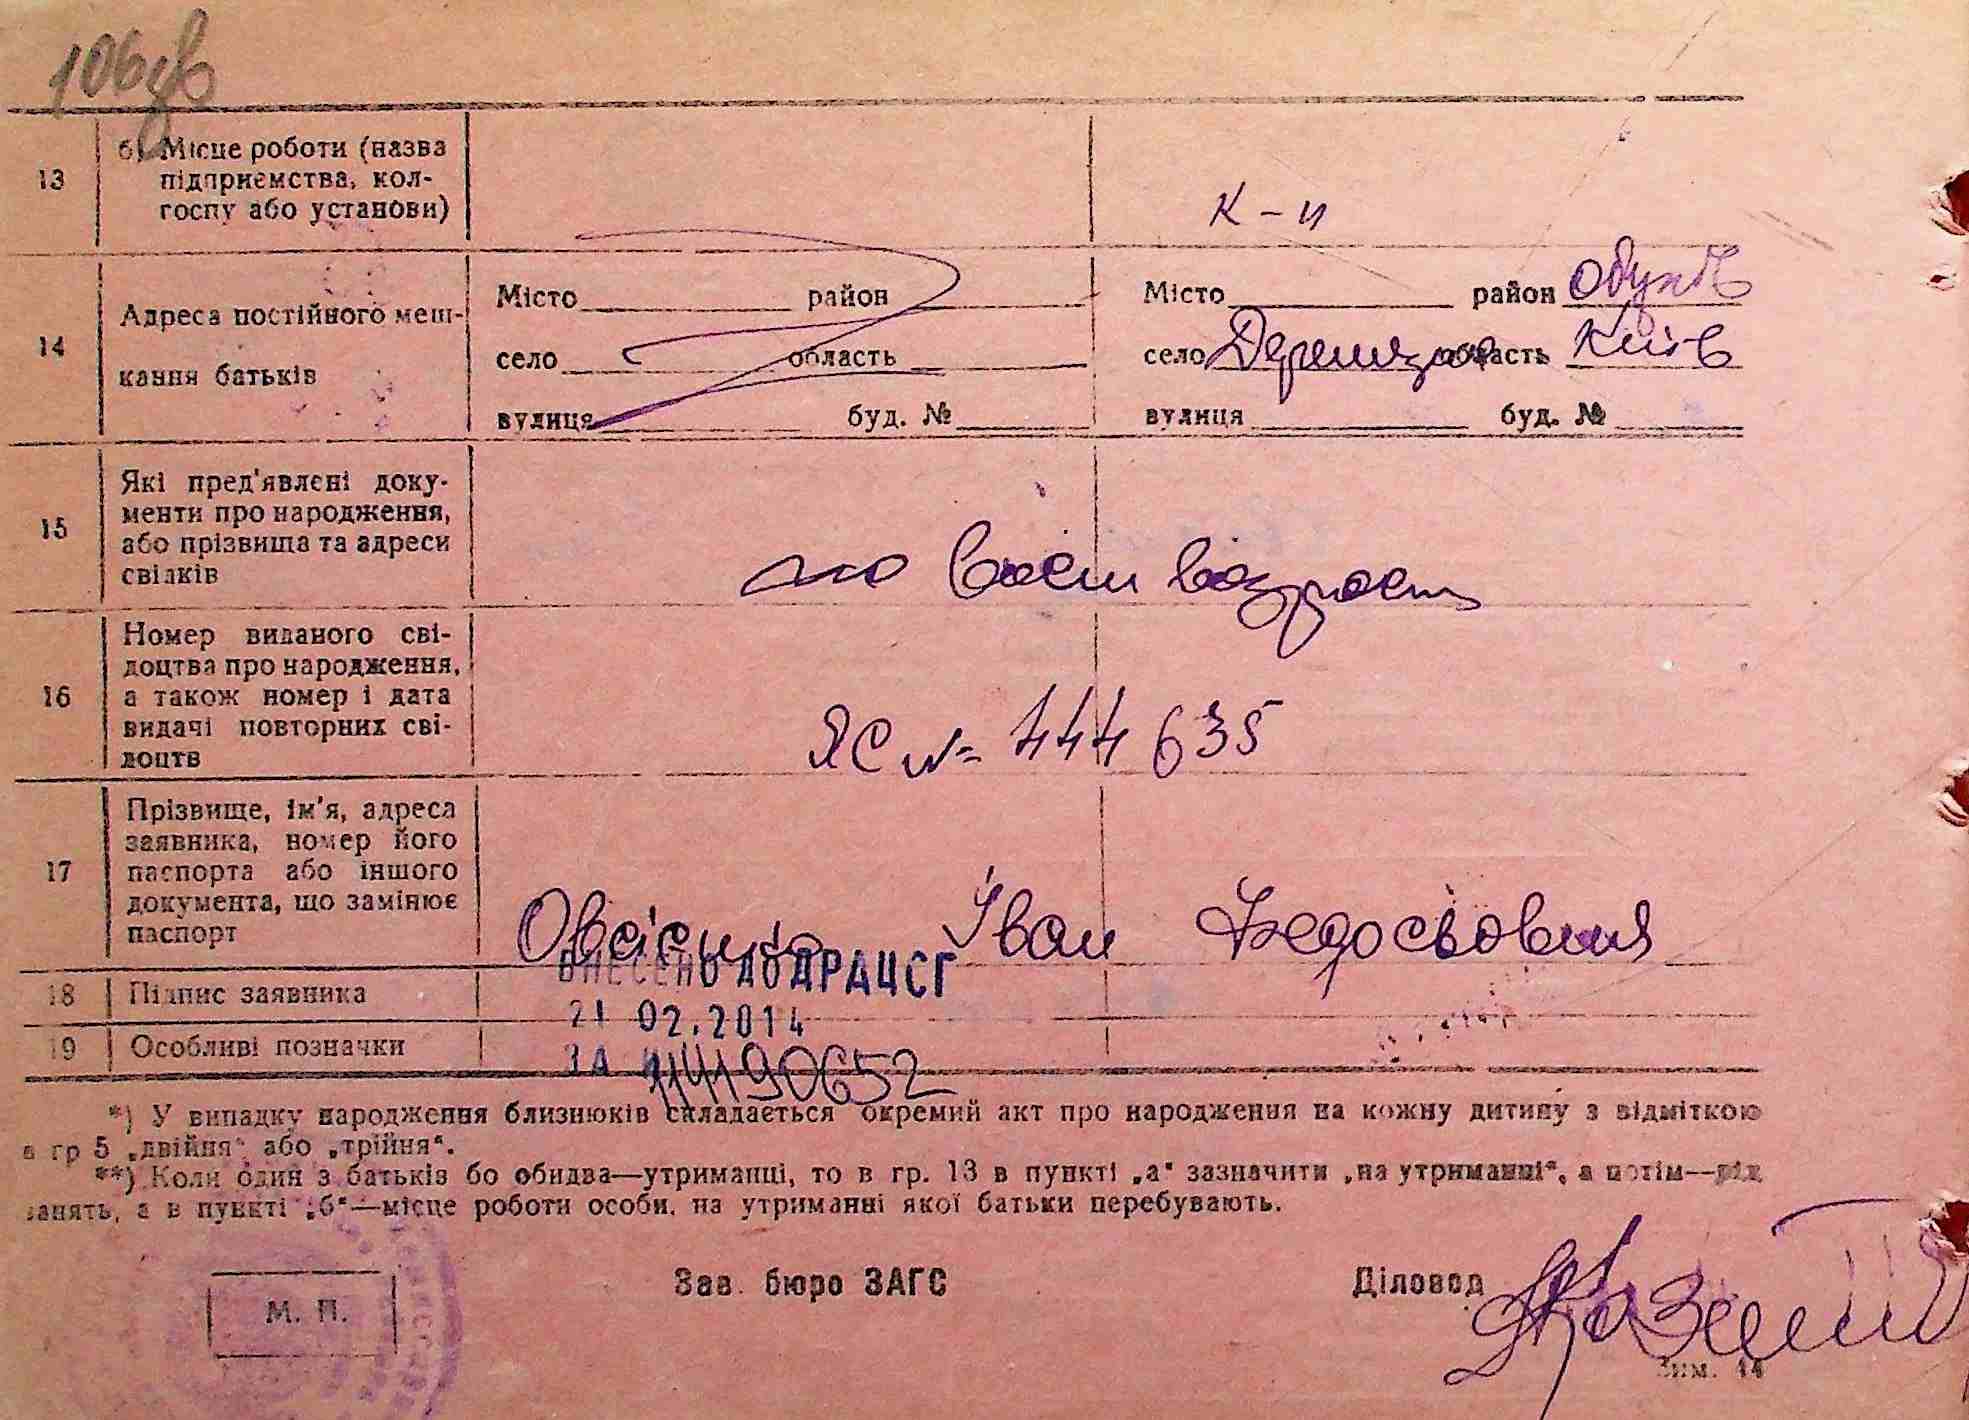 106
13
б) Місце роботи (назва
підприємства, кол-
госпу або установи)
К - и
14
Адреса постійного меш-
кання батьків
Місто район
село область
вулиця буд. №
Місто район Обухів
село Деремезна область Київ
вулиця буд. №
15
Які пред'явлені доку-
менти про народження,
або прізвища та адреси
свідків
по воєт возрост
16
Номер виданого сві-
доцтва про народження,
а також номер і дата
видачі повторних сві-
доцтв
ЯС № 444635
17
Прізвище, ім'я, адреса
заявника, номер його
паспорта або іншого
документа, що замінює
паспорт
Овсієнко Іван Федосьович
18
Підпис заявника
ВНЕСЕНО ДО ДРАЦСГ
21 02.2014
19
Особливі позначки
ЗА 114190652
*) У випадку народження близнюків складається окремий акт про народження на кожну дитину з відміткою
в гр 5 „двійня" або „трійня".
**) Коли один з батьків бо обидва—утриманці, то в гр. 13 в пункті „а" зазначити „на утриманні", а потім—рід
занять, а в пункті „б"—місце роботи особи, на утриманні якої батьки перебувають.
М. П.
Зав. бюро ЗАГС
Діловод
Зим. 14